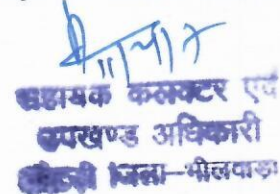 सहायक कलक्टर एवं
उपखण्ड अधिकारी
जिला-भीलवाड़ा